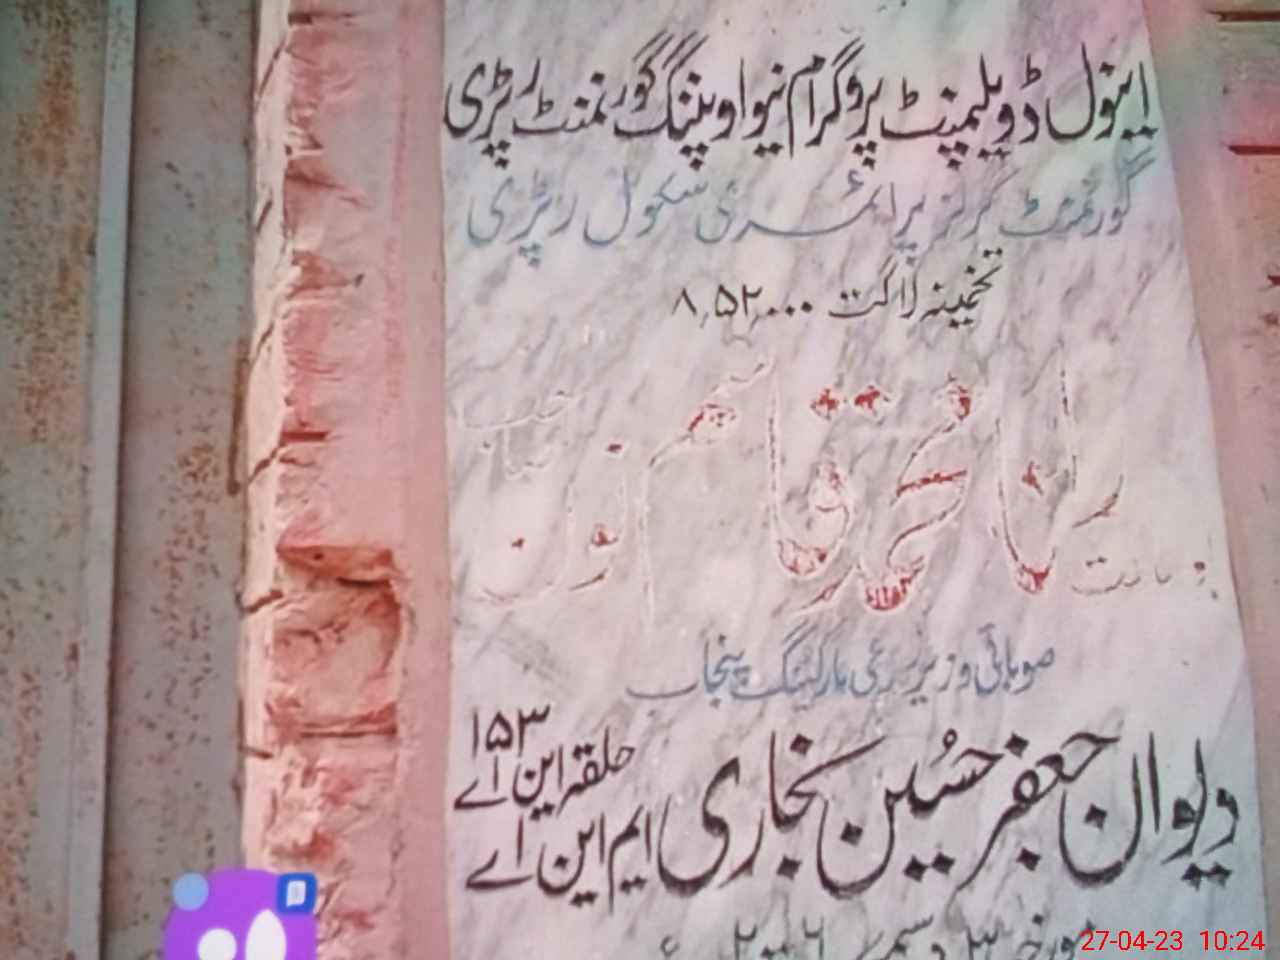 اینول ڈویلپمنٹ پروگرام نیو اوپننگ گورنمنٹ رپڑی
گورنمنٹ گرلز پرائمری سکول رپڑی
تخمینہ لاگت ۸,۵۲,۰۰۰
رانا محمد قاسم نون
صوبائی وزیر زرعی مارکیٹنگ پنجاب
دیوان جعفر حسین بخاری ایم این اے
حلقہ این اے ۱۵۳
مورخہ ۳ دسمبر ۲۰۰۶ء
27-04-23 10:24